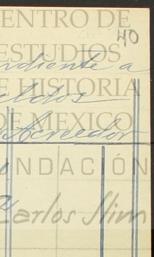 CENTRO DE
40
ESTUDIOS
ndiente a
DE HISTORIA
ueldos
DE MEXICO
Acreedor
FUNDACIÓN
Carlos Slim